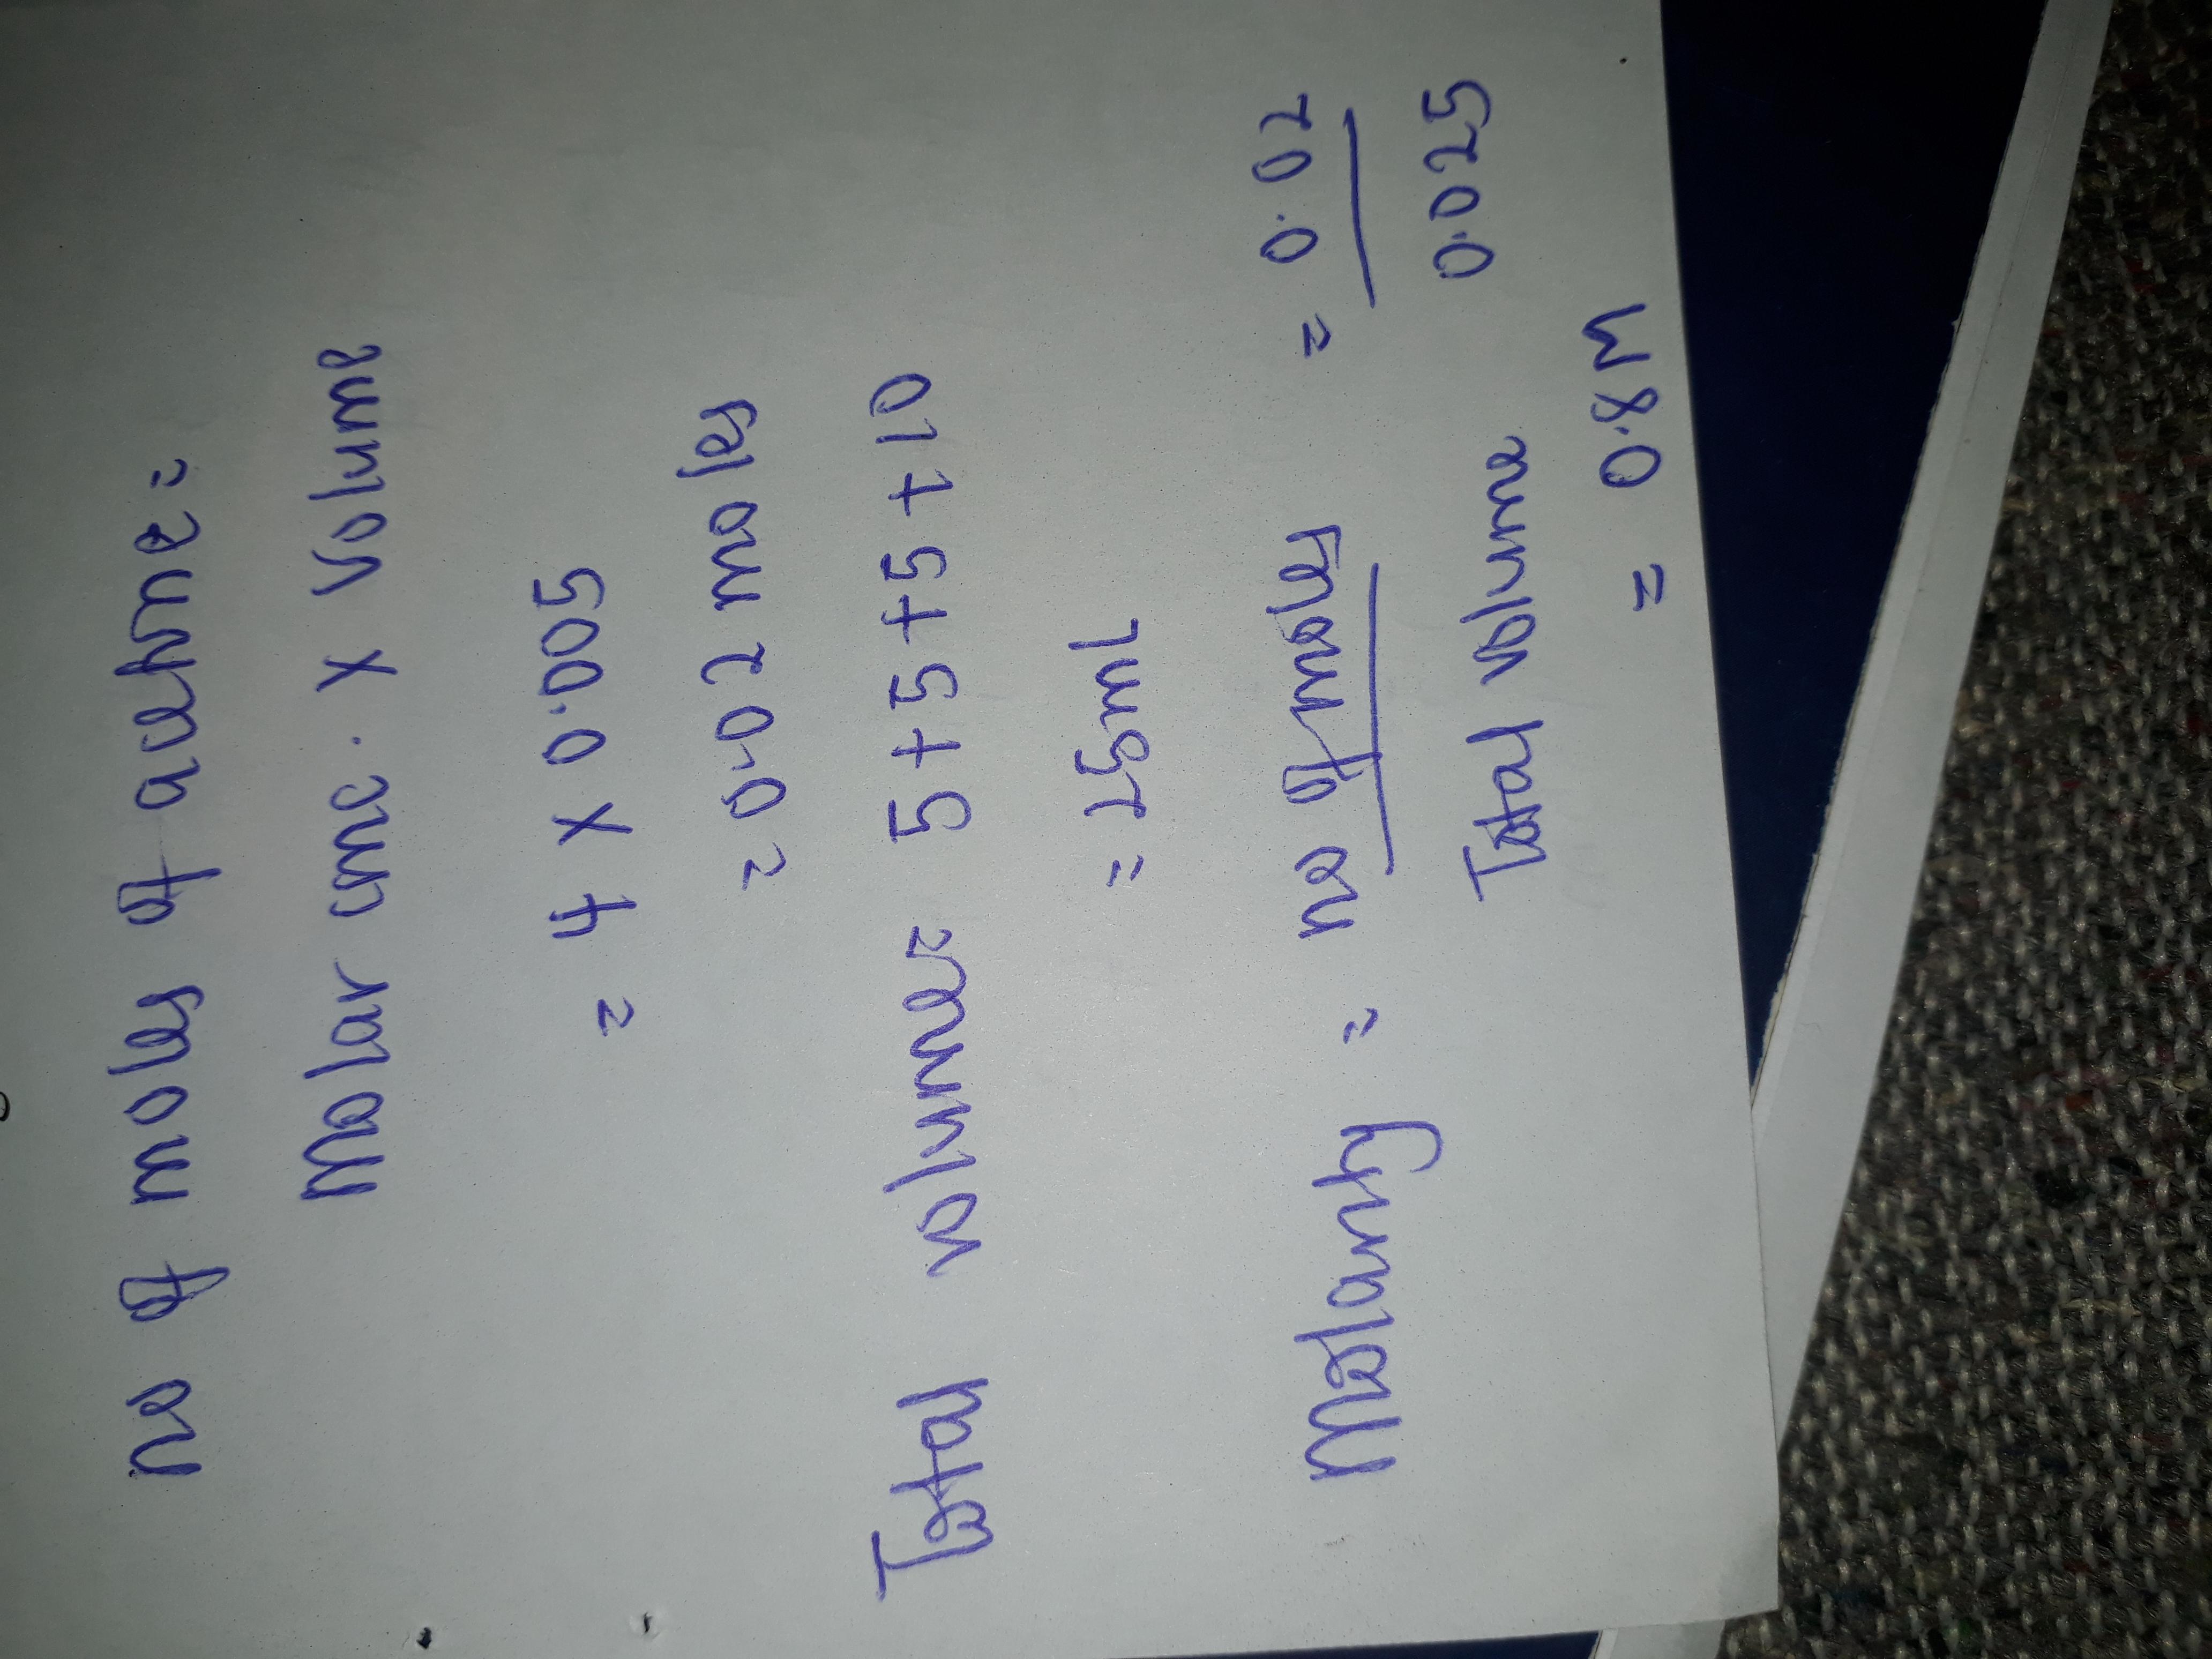 no of moles of acetone =
Molar conc. x volume
= 4 x 0.005
= 0.02 moles
Total volume = 5+5+5+10
= 25ml
Molarity = no of moles = 0.02
Total volume 0.025
= 0.8M